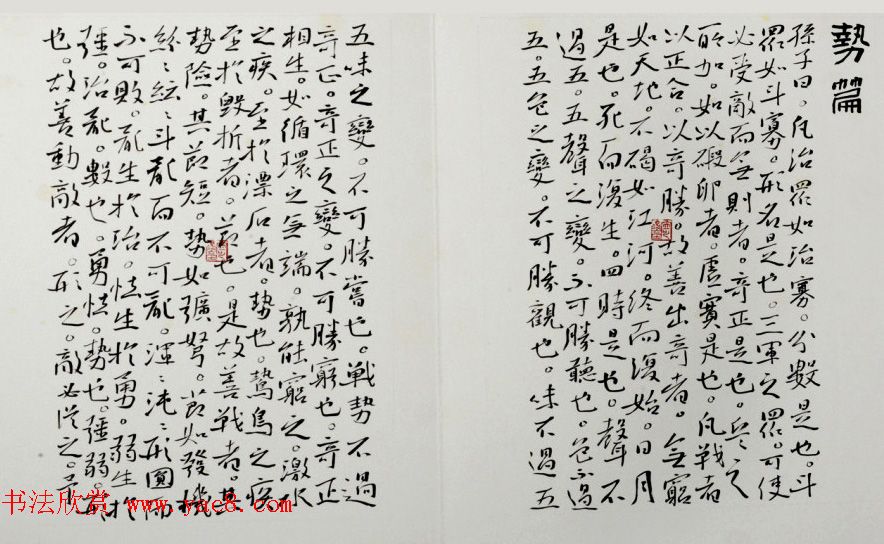 勢篇
孫子曰。凡治眾如治寡。分數是也。斗
眾如斗寡。形名是也。三軍之眾。可使
必受敵而无則者。奇正是也。兵之
所加。如以碬卵者。虛實是也。凡戰者
以正合。以奇勝。故善出奇者。無窮
如天地。不碣如江河。終而復始。日月
是也。死而復生。四時是也。聲不
過五。五聲之變。不可勝聽也。色不過
五。五色之變。不可勝觀也。味不過五
五味之變。不可勝嘗也。戰勢不過
奇正。奇正之變。不可勝窮也。奇正
相生。如循環之無端。孰能窮之。激水
之疾。至於漂石者。勢也。鷙鳥之疾
至於毀折者。節也。是故善戰者。其
勢險。其節短。勢如彍弩。節如發機
紛〻紜〻斗亂而不可亂。渾〻沌〻形圓而
不可敗。亂生於治。怯生於勇。弱生於
彊。治亂。數也。勇怯。勢也。彊弱。形
也。故善動敵者。形之。敵必從之。予
书法欣赏 www.yac8.com